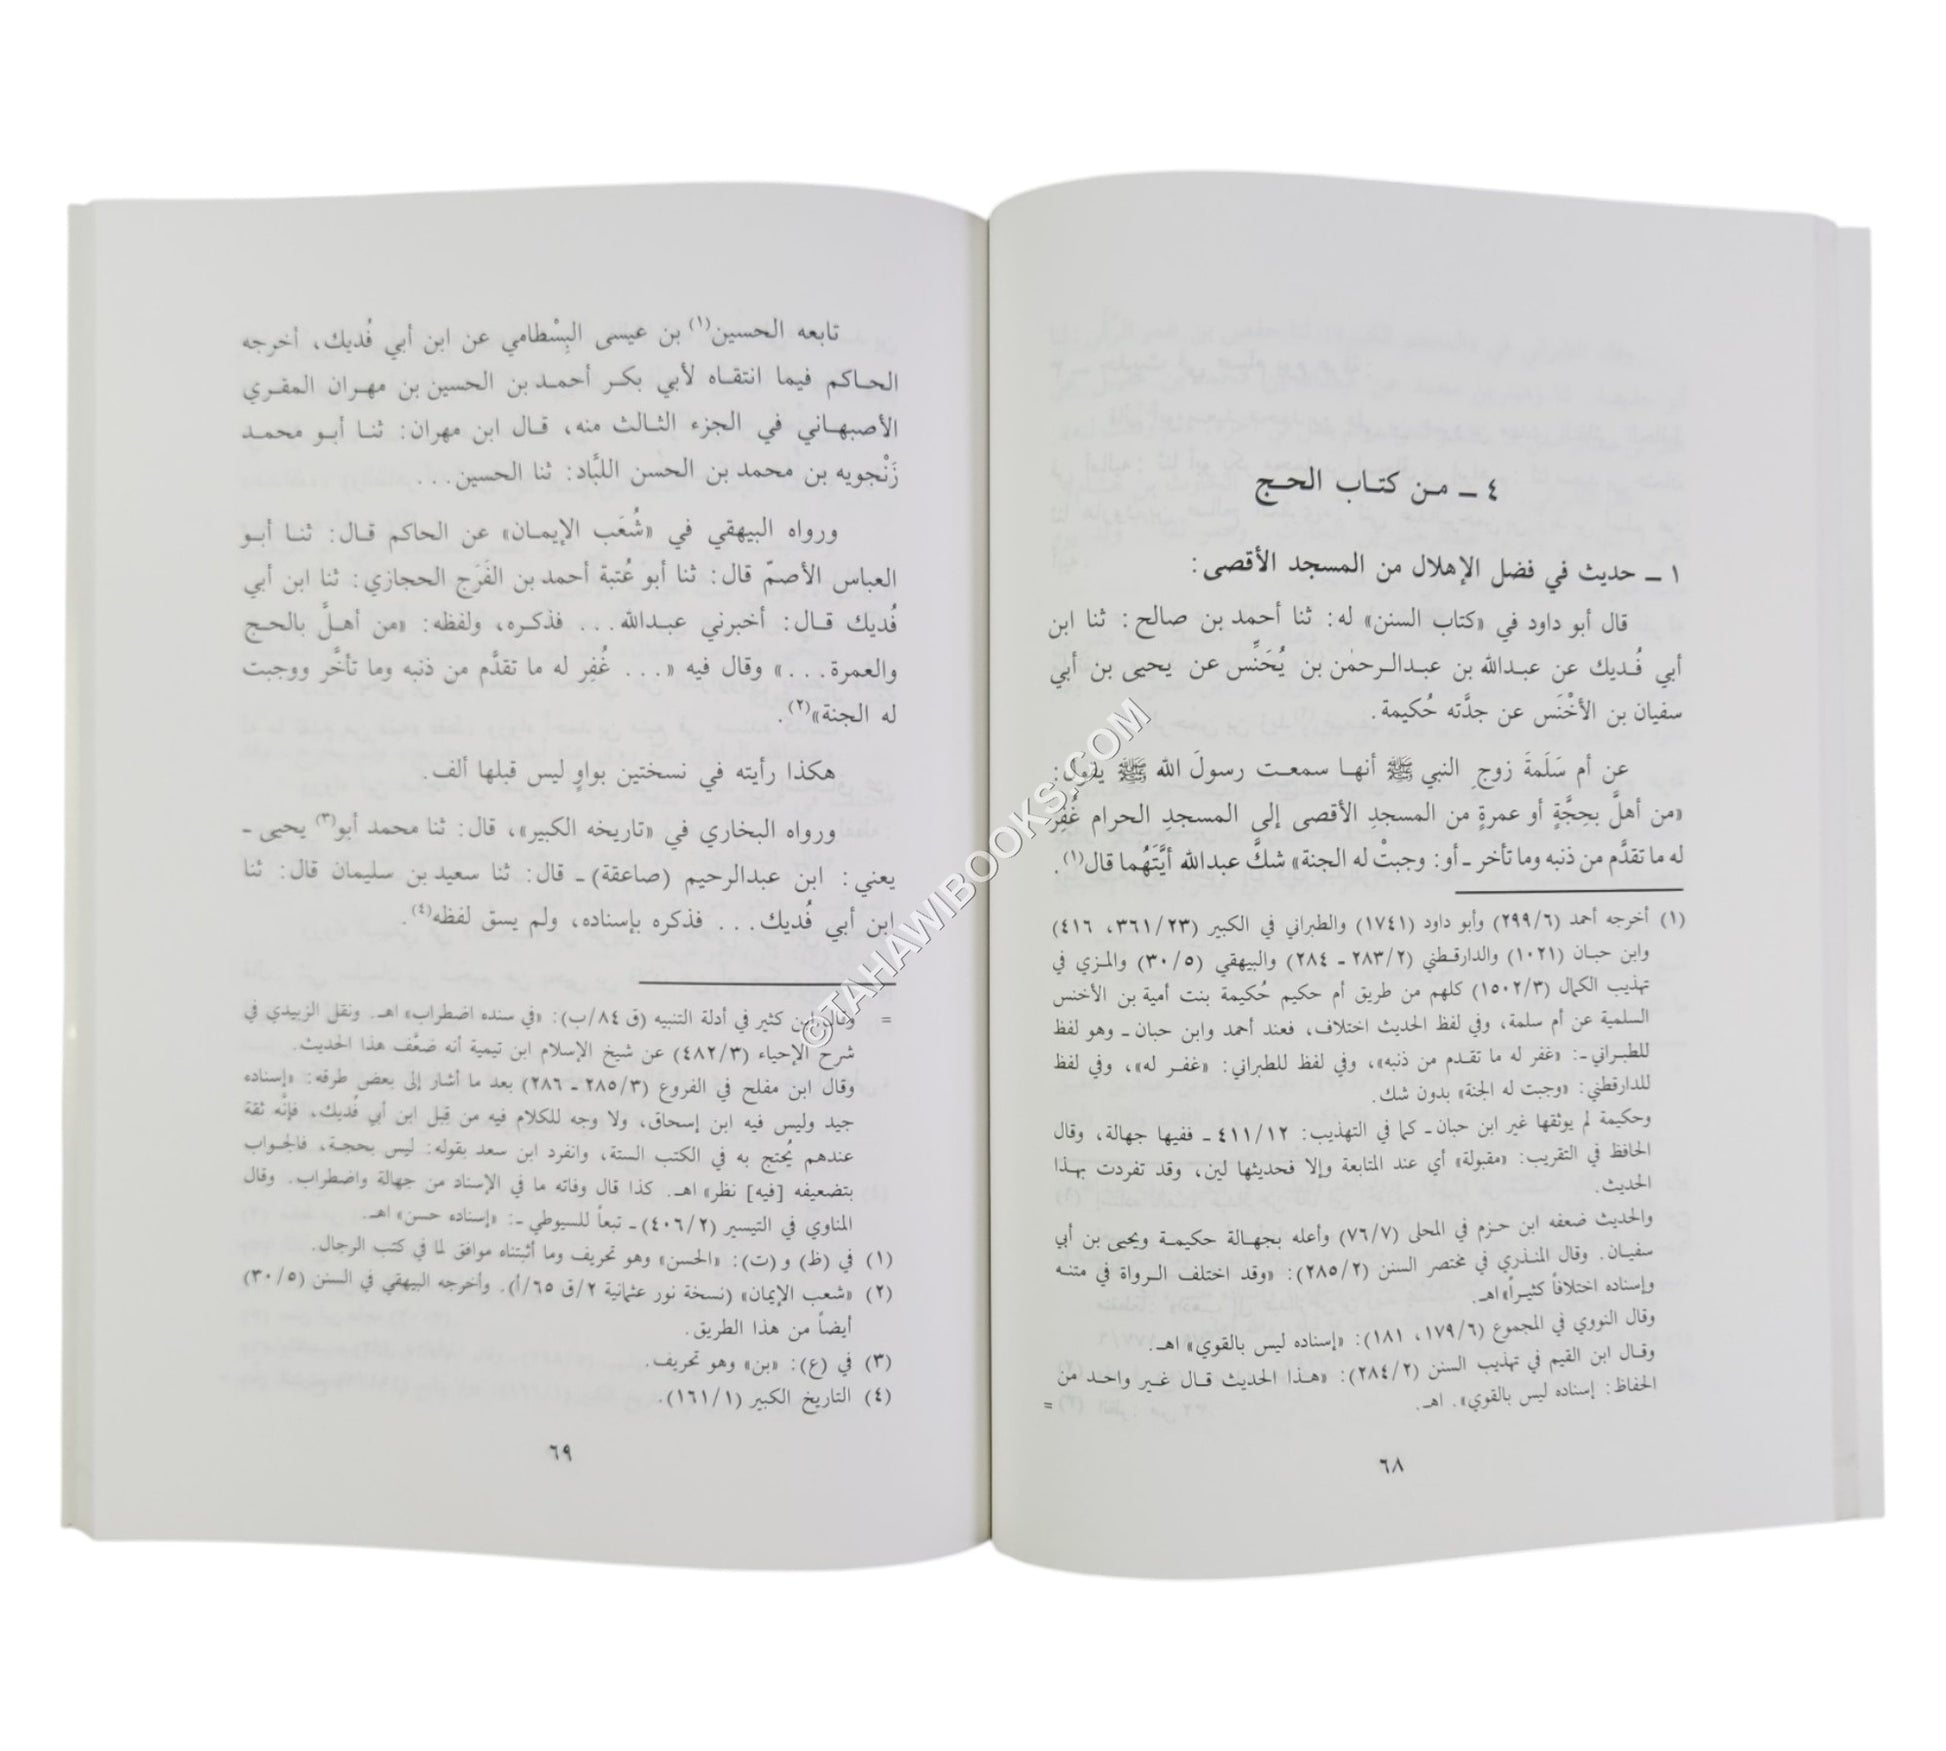 ٤ ــ مـن كتـاب الحـج
١ ــ حديث في فضل الإهلال من المسجد الأقصى:
قال أبو داود في «كتاب السنن» له: ثنا أحمد بن صالح: ثنا ابن
أبي فُـديك عن عبـدالله بن عبـدالـرحمٰن بن يُحَنِّس عن يحيى بن أبي
سفيان بن الأخْنَس عن جدَّته حُكيمة.
عن أم سَلَمةَ زوجِ النبي ﷺ أنهـا سمعـت رسولَ الله ﷺ يقول:
«من أهلَّ بحِجَّةٍ أو عمرةٍ من المسجدِ الأقصى إلى المسجدِ الحرام غُفِرَ
له ما تقدَّم من ذنبه وما تأخر ـ أو: وجبتْ له الجنة» شكَّ عبدالله أيَّتَهُما قال(١).
(١) أخرجه أحمد (٢٩٩/٦) وأبو داود (١٧٤١) والطبراني في الكبير (٣٦١/٢٣، ٤١٦)
وابن حبـان (١٠٢١) والدارقـطني (٢٨٣/٢ ـ ٢٨٤) والبيهقي (٣٠/٥) والمـزي في
تهذيب الكمال (١٥٠٢/٣) كلهم من طريق أم حكيم حُكيمة بنت أمية بن الأخنس
السلمية عن أم سلمة، وفي لفظ الحديث اختلاف، فعند أحمد وابن حبان ـ وهو لفظ
للطبـراني ـ: «غفر له ما تقـدم من ذنبه»، وفي لفظ للطبراني: «غفـر له»، وفي لفظ
للدارقطني: «وجبت له الجنة» بدون شك.
وحكيمة لم يوثقها غير ابن حبان ـ كما في التهذيب: ٤١١/١٢ ـ ففيها جهالة، وقال
الحافظ في التقريب: «مقبولة» أي عند المتابعة وإلا فحديثها لين، وقد تفردت بهـذا
الحديث.
والحديث ضعفه ابن حـزم في المحلى (٧٦/٧) وأعله بجهـالة حكيمـة ويحيى بن أبي
سفيـان. وقال المنـذري في مختصر السنن (٢٨٥/٢): «وقد اختلف الـرواة في متنـه
وإسناده اختلافاً كثيراً» اهـ.
وقال النووي في المجموع (١٧٩/٦، ١٨١): «إسناده ليس بالقوي» اهـ.
وقـال ابن القيم في تهذيب السنن (٢٨٤/٢): «هـذا الحديث قـال غـير واحـد من
الحفاظ: إسناده ليس بالقوي». اهـ.
=
٦٨
تابعه الحسين(١) بن عيسى البِسْطامي عن ابن أبي فُديك، أخرجه
الحـاكم فيما انتقـاه لأبي بكـر أحمـد بن الحسين بن مهـران المقـري
الأصبهـاني في الجزء الثـالث منه، قـال ابن مهران: ثنـا أبـو محمـد
زَنْجويه بن محمد بن الحسن اللبَّاد: ثنا الحسين...
ورواه البيهقي في «شُعَب الإيمـان» عن الحاكم قـال: ثنـا أبـو
العباس الأصمّ قال: ثنا أبو عُتبة أحمد بن الفَرَج الحجازي: ثنا ابن أبي
فُديك قـال: أخبرني عبـدالله... فذكـره، ولفظه: «من أهـلَّ بالحـج
والعمرة...» وقال فيه «... غُفِر له ما تقدَّم من ذنبه وما تأخَّر ووجبت
له الجنة»(٢).
هكذا رأيته في نسختين بواوٍ ليس قبلها ألف.
ورواه البخاري في «تاريخه الكبير»، قال: ثنا محمد أبو(٣) يحيى ـ
يعني: ابن عبدالرحيم (صاعقة) ـ قال: ثنا سعيد بن سليمان قال: ثنا
ابن أبي فُديك... فذكره بإسناده، ولم يسق لفظه(٤).
= وقال ابن كثير في أدلة التنبيه (ق ٨٤/ب): «في سنده اضطراب» اهـ. ونقل الزبيدي في
شرح الإحياء (٤٨٢/٣) عن شيخ الإسلام ابن تيمية أنه ضعَّف هذا الحديث.
وقال ابن مفلح في الفروع (٢٨٥/٣ ـ ٢٨٦) بعد ما أشار إلى بعض طرقه: «إسناده
جيد وليس فيه ابن إسحاق، ولا وجه للكلام فيه من قِبل ابن أبي فُديك، فإنَّه ثقة
عندهم يُحتج به في الكتب الستة، وانفرد ابن سعد بقوله: ليس بحجـة، فالجـواب
بتضعيفه [فيه] نظر» اهـ. كذا قال وفاته ما في الإسناد من جهالة واضطراب. وقال
المناوي في التيسير (٤٠٦/٢) ـ تبعاً للسيوطي ـ: «إسناده حسن» اهـ.
(١) في (ظ) و(ت): «الحسن» وهو تحريف وما أثبتناه موافق لما في كتب الرجال.
(٢) «شعب الإيمان» (نسخة نور عثمانية ٢/ق ٦٥/أ). وأخرجه البيهقي في السنن (٣٠/٥)
أيضاً من هذا الطريق.
(٣) في (ع): «بن» وهو تحريف.
(٤) التاريخ الكبير (١٦١/١).
٦٩
©TAHAWIBOOKS.COM